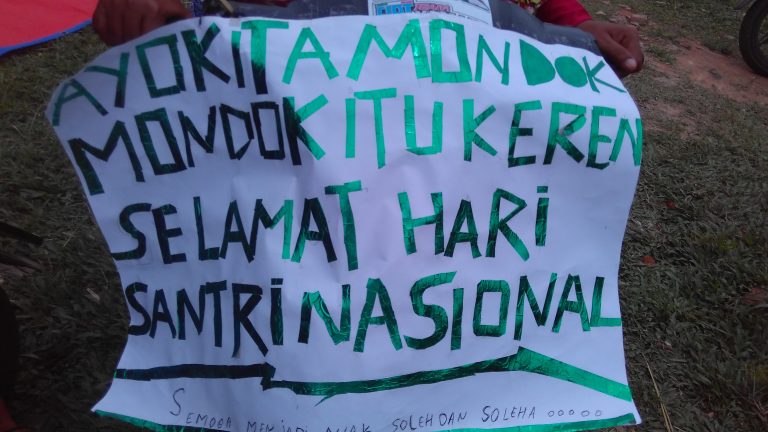 AYO KITA MONDOK
MONDOK ITU KEREN
SELAMAT HARI
SANTRI NASIONAL
SEMOGA MENJADI ANAK SOLEH DAN SOLEHA .....